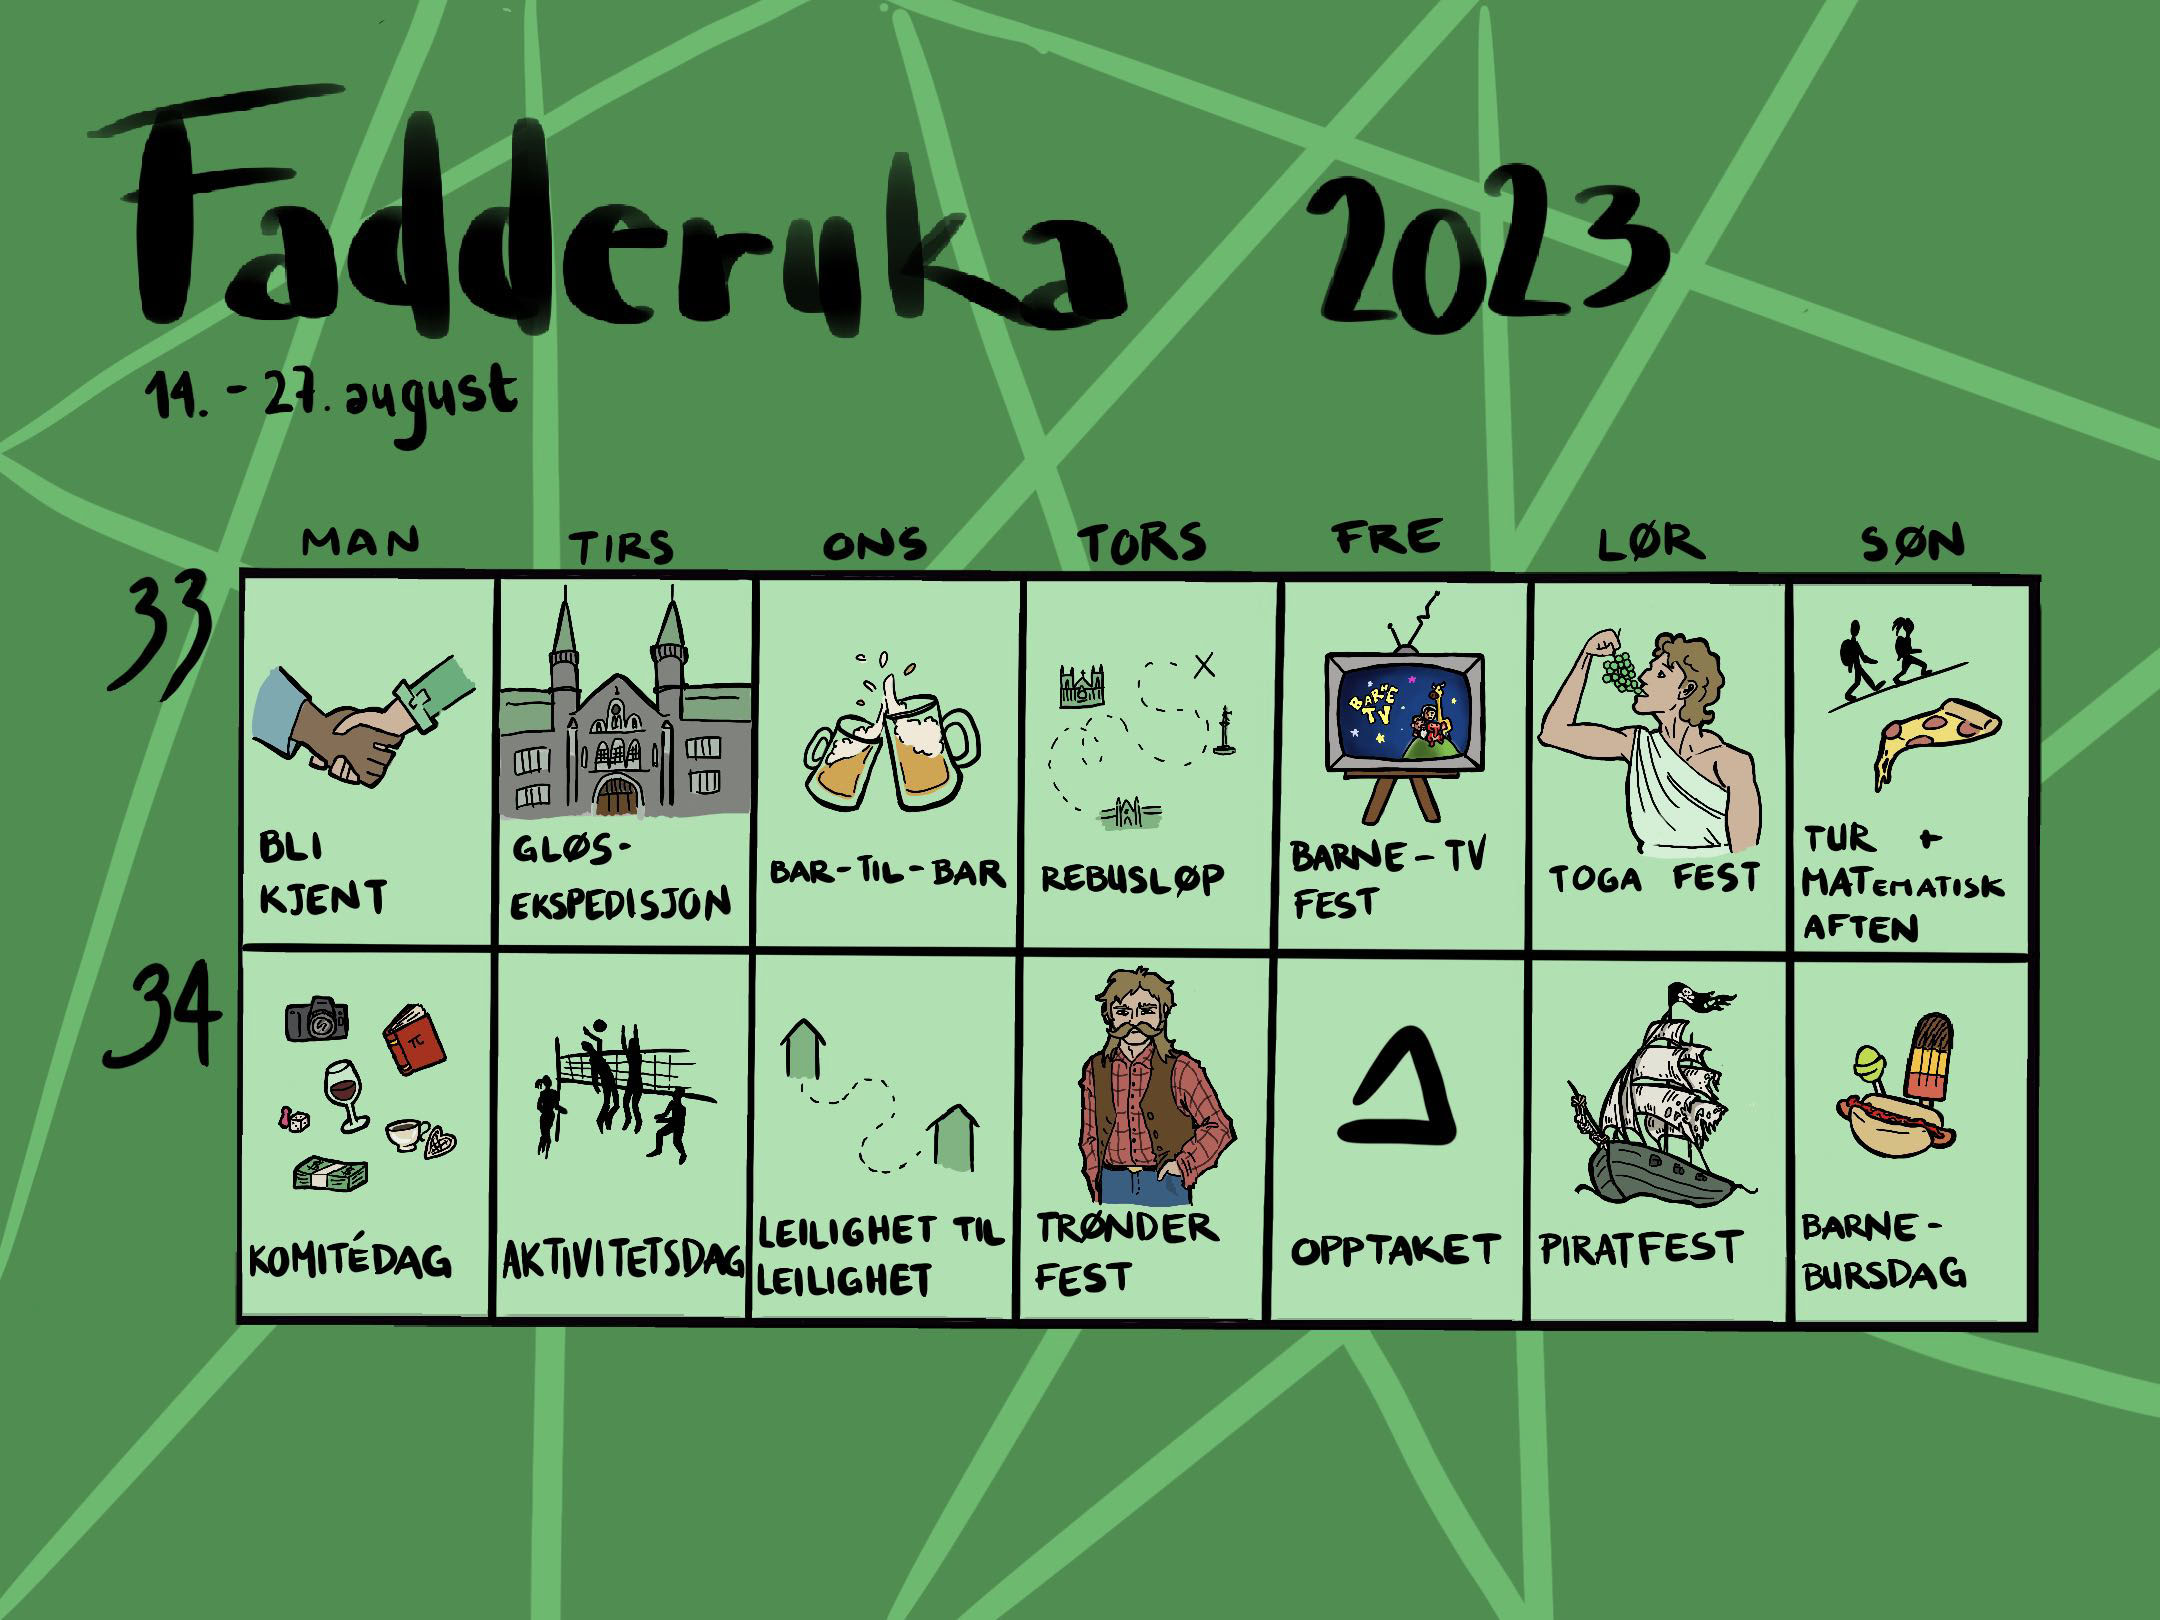 Fadderuka 2023
14. - 27. august
MAN TIRS ONS TORS FRE LØR SØN
33
BLI
KJENT
GLØS-
EKSPEDISJON
BAR-TIL-BAR
X
REBUSLØP
BARNE
TV
BARNE-TV
FEST
TOGA FEST
TUR +
MATEMATISK
AFTEN
34
π
KOMITÉDAG
AKTIVITETSDAG
LEILIGHET TIL
LEILIGHET
TRØNDER
FEST
OPPTAKET
PIRATFEST
BARNE-
BURSDAG